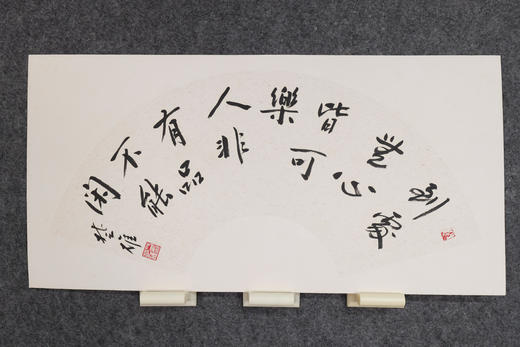 到處
心
皆可
樂
人非
有品
不能
闲
楚雄